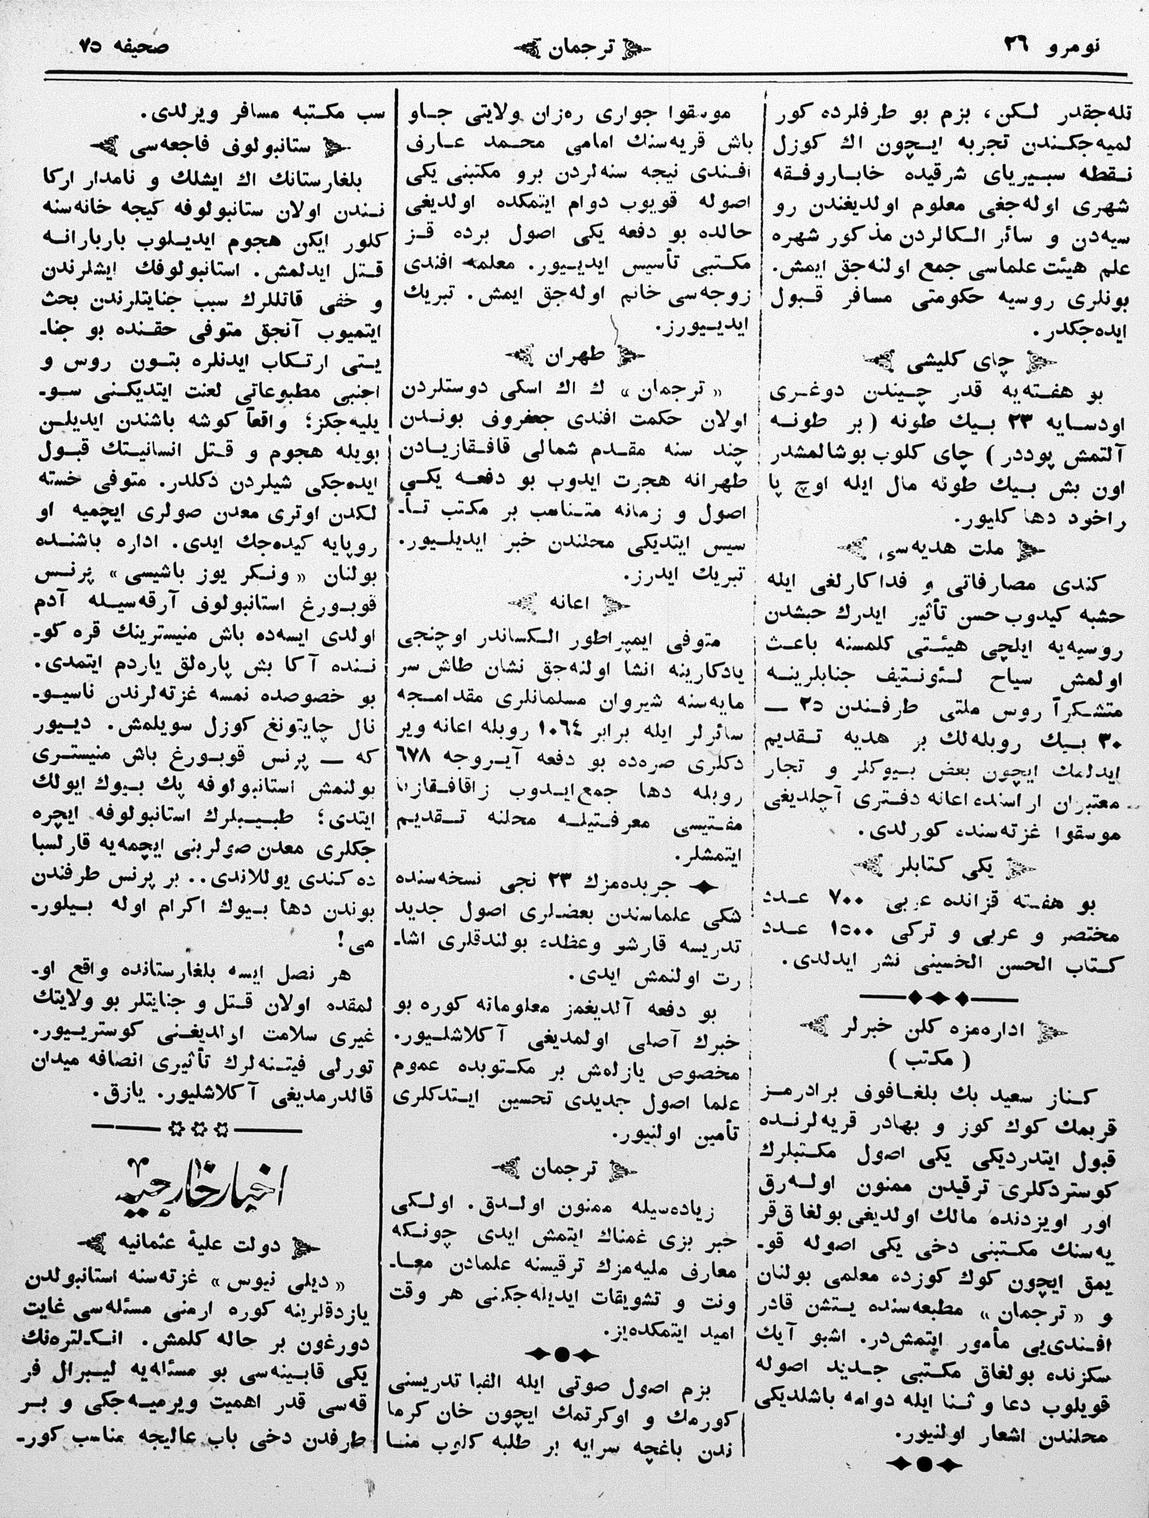 نومرو ٢٦
ترجمان
صحيفه ٧٥
تله‌جقدر لكن، بزم بو طرفلرده كور
لميه‌جكندن تجربه ايچون اك كوزل
نقطه سبيرياى شرقيده خاباروفقه
شهرى اوله‌جغى معلوم اولديغندن رو
سيه‌دن و سائر الكالردن مذكور شهره
علم هيئت علماسى جمع اولنه‌جق ايمش.
بونلرى روسيه حكومتى مسافر قبول
ايده‌جكدر.
چاى كليشى
بو هفته‌يه قدر چيندن دوغرى
اودسايه ٢٣ بيك طونه (بر طونه
آلتمش پوددر) چاى كلوب بوشالمشدر
اون بش بيك طونه مال ايله اوچ پا
راخود دها كليور.
ملت هديه‌سى
كندى مصارفاتى و فداكارلغى ايله
حشبه كيدوب حسن تأثير ايدرك حبشدن
روسيه‌يه ايلچى هيئتى كلمسنه باعث
اولمش سياح لئونتيف جنابلرينه
متشكراً روس ملتى طرفندن ٢٥ —
٣٠ بيك روبله‌لك بر هديه تقديم
ايدلمك ايچون بعض بيوكلر و تجار
معتبران اراسنده اعانه دفترى آچلديغى
موسقوا غزته‌سنده كورلدى.
يكى كتابلر
بو هفته قزانده عربى ٧٠٠ عدد
مختصر و عربى و تركى ١٥٠٠ عدد
كتاب الحسن الحسينى نشر ايدلدى.
اداره‌مزه كلن خبرلر
(مكتب)
كناز سعيد بك بلغافوف برادرمز
قريمك كوك كوز و بهادر قريه‌لرنده
قبول ايتدرديكى يكى اصول مكتبلرك
كوستردكلرى ترقيدن ممنون اوله‌رق
اور اويزدنده مالك اولديغى بولغاق قر
يه‌سنك مكتبنى دخى يكى اصوله قو-
يمق ايچون كوك كوزده معلمى بولنان
و «ترجمان» مطبعه‌سنده يتشن قادر
افندى‌يى مأمور ايتمش‌در. اشبو آيك
سكزنده بولغاق مكتبى جديد اصوله
قويلوب دعا و ثنا ايله دوامه باشلديكى
محلندن اشعار اولنيور.
موسقوا جوارى ره‌زان ولايتى جاو
باش قريه‌سنك امامى محمد عارف
افندى نيجه سنه‌لردن برو مكتبنى يكى
اصوله قويوب دوام ايتمكده اولديغى
حالده بو دفعه يكى اصول برده قز
مكتبى تأسيس ايديیور. معلمه افندى
زوجه‌سى خانم اوله‌جق ايمش. تبريك
ايديیورز.
طهران
«ترجمان» ك اك اسكى دوستلردن
اولان حكمت افندى جعفروف بوندن
چند سنه مقدم شمالى قافقازيادن
طهرانه هجرت ايدوب بو دفعه يكى
اصول و زمانه متناسب بر مكتب تأ-
سيس ايتديكى محلندن خبر ايديليور.
تبريك ايدرز.
اعانه
متوفى ايمپراطور الكساندر اوچنجى
يادكارينه انشا اولنه‌جق نشان طاش سر
مايه‌سنه شيروان مسلمانلرى مقدامجه
سائرلر ايله برابر ١٠٦٤ روبله اعانه وير
دكلرى صره‌ده بو دفعه آيروجه ٦٧٨
روبله دها جمع ايدوب زاقافقازيا
مفتيسى معرفتيله محلنه تقديم
ايتمشلر.
جريده‌مزك ٢٣ نجى نسخه‌سنده
شكى علماسندن بعضلرى اصول جديد
تدريسه قارشو وعظده بولندقلرى اشا-
رت اولنمش ايدى.
بو دفعه آلديغمز معلوماته كوره بو
خبرك آصلى اولمديغى آكلاشليور.
مخصوص يازلمش بر مكتوبده عموم
علما اصول جديدى تحسين ايتدكلرى
تأمين اولنيور.
ترجمان
زياده‌سيله ممنون اولدق. اولكى
خبر بزى غمناك ايتمش ايدى چونكه
معارف مليه‌مزك ترقيسنه علمادن معا-
ونت و تشويقات ايديله‌جكنى هر وقت
اميد ايتمكده‌يز.
بزم اصول صوتى ايله الفبا تدريسنى
كورمك و اوكرتمك ايچون خان كرما
ندن باغچه سرايه بر طلبه كلوب منا
سب مكتبه مسافر ويرلدى.
ستانبولوف فاجعه‌سى
بلغارستانك اك ايشلك و نامدار اركا
نندن اولان ستانبولوفه كيجه خانه‌سنه
كلور ايكن هجوم ايديلوب باربارانه
قتل ايدلمش. استانبولوفك ايشلرندن
و خفى قاتللرك سبب جنايتلرندن بحث
ايتميوب آنجق متوفى حقنده بو جنا-
يتى ارتكاب ايدنلره بتون روس و
اجنبى مطبوعاتى لعنت ايتديكنى سو-
يليه‌جكز؛ واقعاً كوشه باشندن ايديلن
بويله هجوم و قتل انسانيتك قبول
ايده‌جكى شيلردن دكلدر. متوفى خسته
لكدن اوترى معدن صولرى ايچميه او
روپايه كيده‌جك ايدى. اداره باشنده
بولنان «ونكر يوز باشيسى» پرنس
قوبورغ استانبولوف آرقه‌سيله آدم
اولدى ايسه‌ده باش منيسترينك قره كو-
ننده آكا بش پاره‌لق ياردم ايتمدى.
بو خصوصده نمسه غزته‌لرندن ناسيو-
نال چايتونغ كوزل سويلمش. ديیور
كه — پرنس قوبورغ باش منيسترى
بولنمش استانبولوفه پك بيوك ايولك
ايتدى؛ طبيبلرك استانبولوفه ايچره
جكلرى معدن صولرينى ايچمه‌يه قارلسبا
ده كندى يوللاندى.. بر پرنس طرفندن
بوندن دها بيوك اكرام اوله بيلور-
مى!
هر نصل ايسه بلغارستانده واقع او-
لمقده اولان قتل و جنايتلر بو ولايتك
غيرى سلامت اولديغنى كوستريیور.
تورلى فيتنه‌لرك تأثيرى انصافه ميدان
قالدرمديغى آكلاشليور. يازق.
اخبار خارجيه
دولت عليهٔ عثمانيه
«ديلى نيوس» غزته‌سنه استانبولدن
يازدقلرينه كوره ارمنى مسئله‌سى غايت
دورغون بر حاله كلمش. انكلتره‌نك
يكى قابينه‌سى بو مسئله‌يه ليبرال فر
قه‌سى قدر اهميت ويرميه‌جكى و بر
طرفدن دخى باب عاليجه مناسب كور-